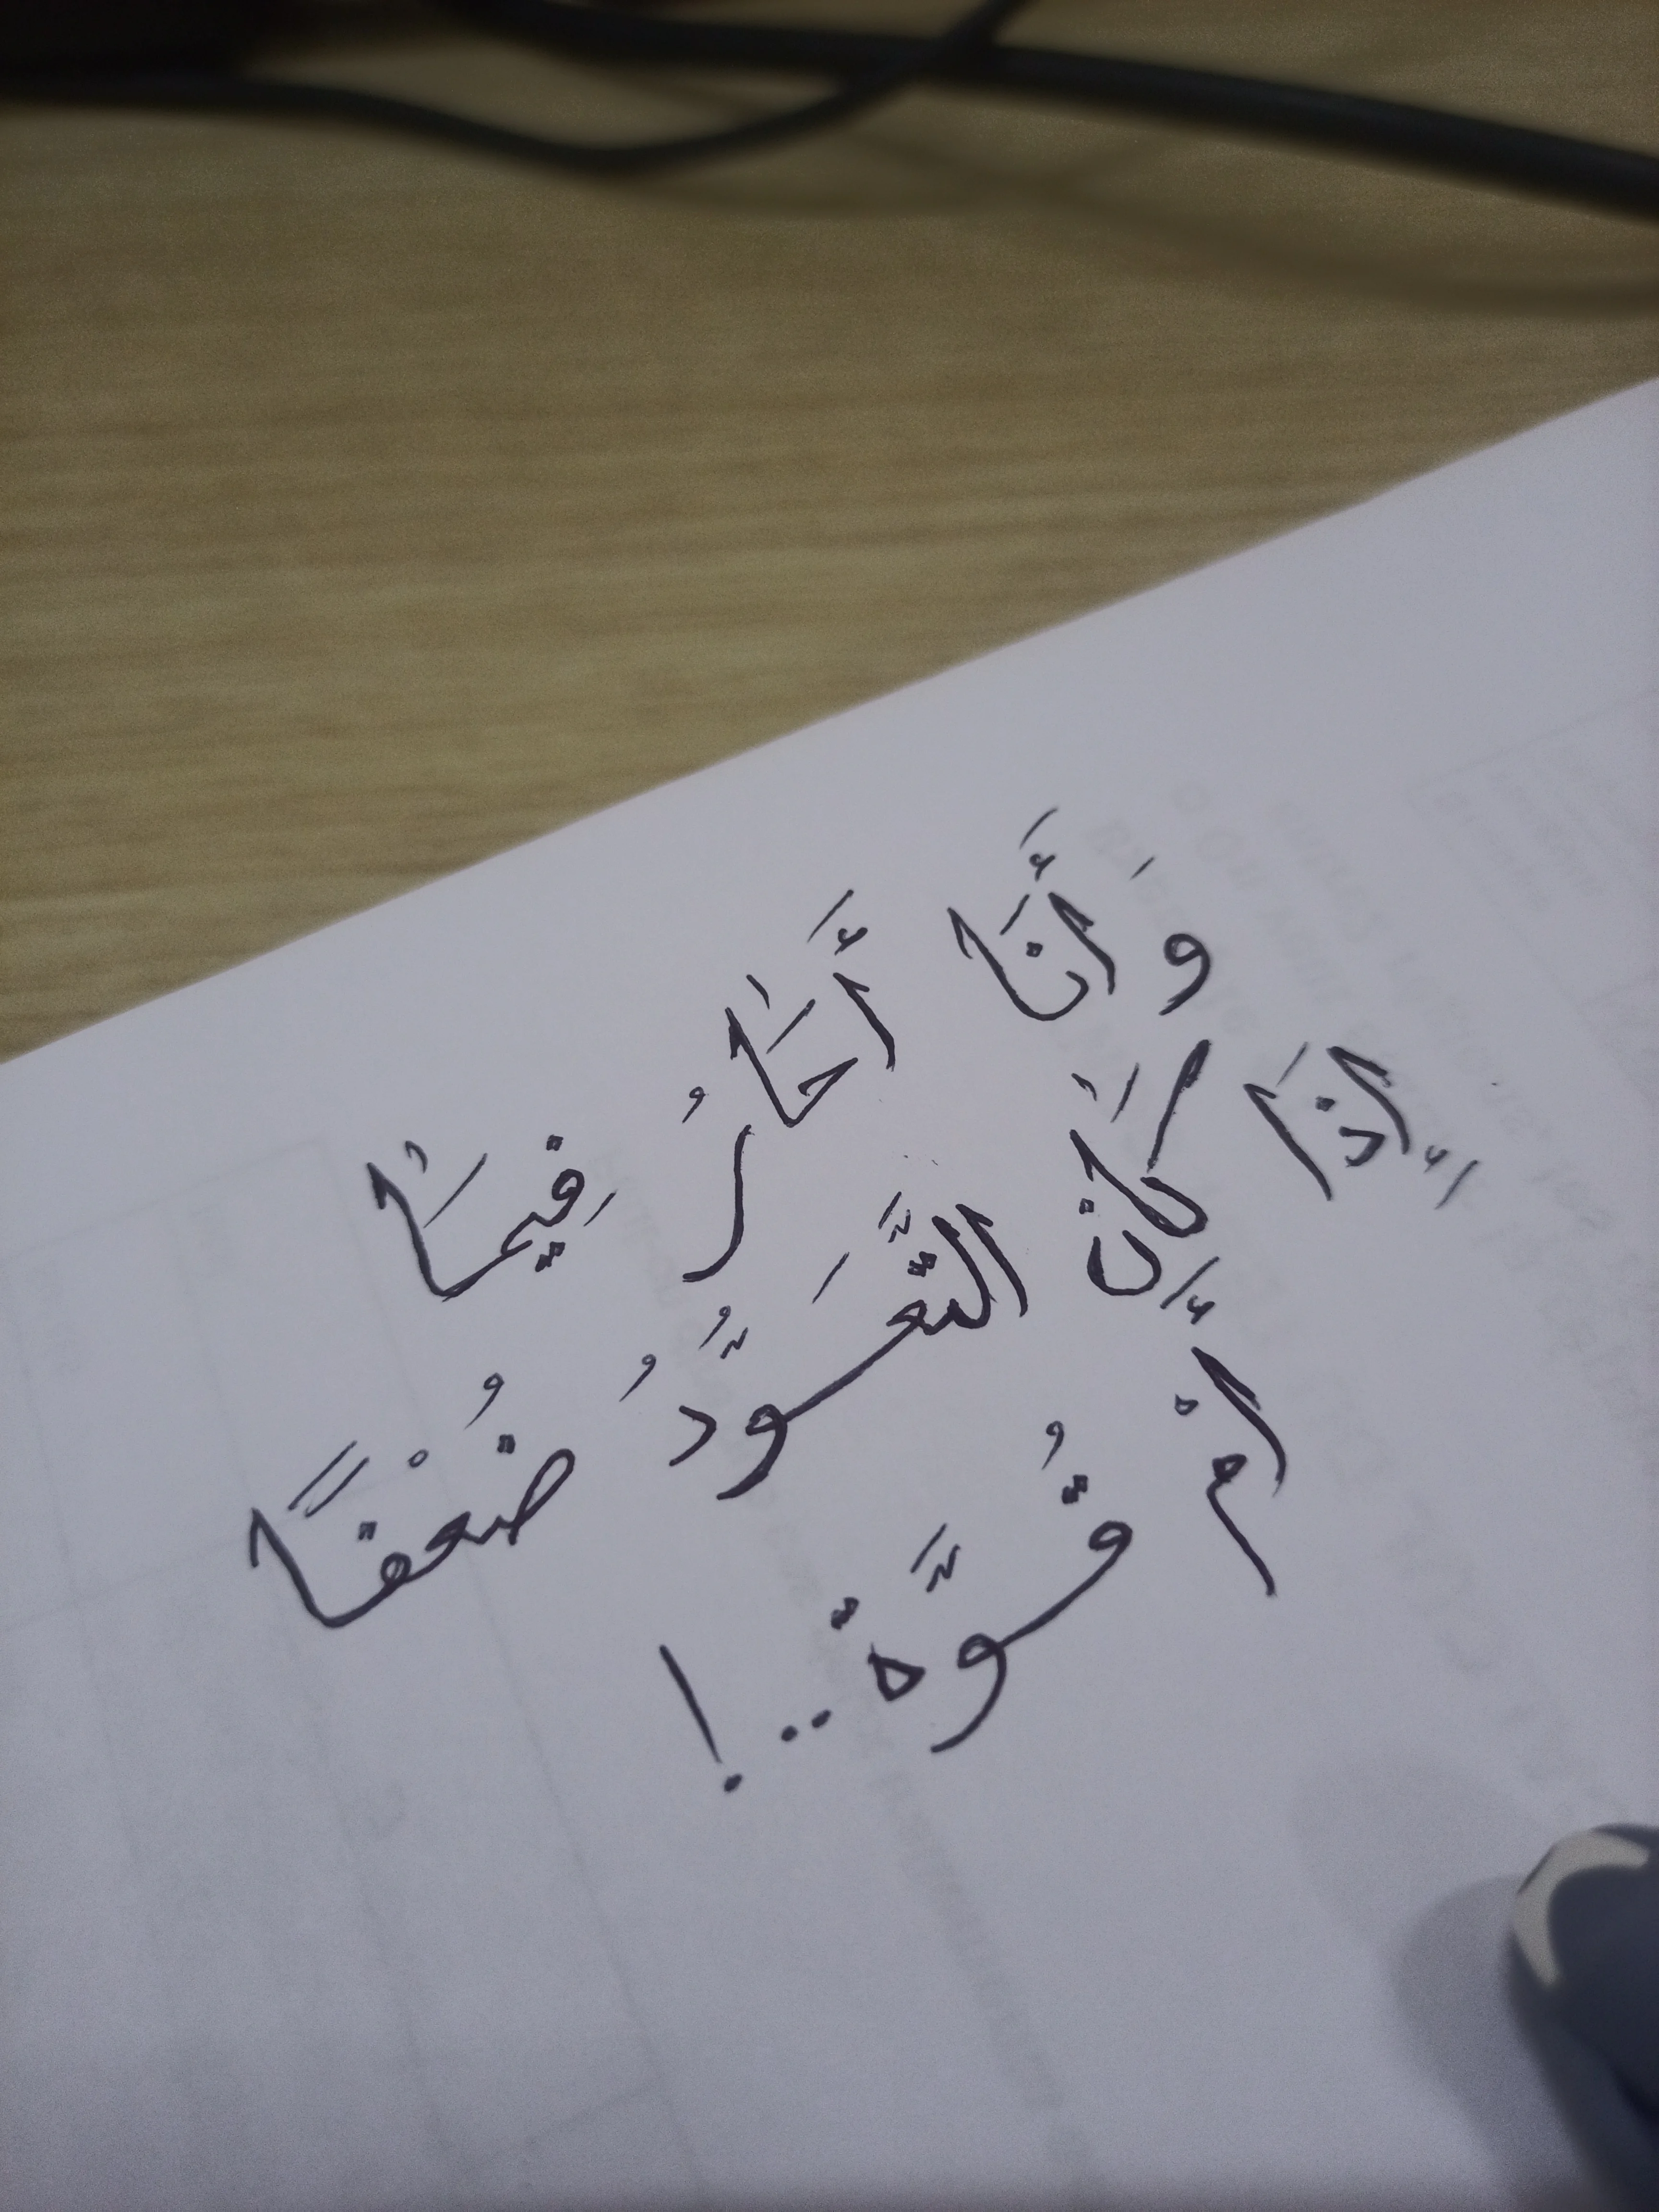 وَأَنَا أَحَارُ فِيمَا
إِذَا كَانَ التَّعَوُّدُ ضُعْفًا
أَمْ قُوَّة..!